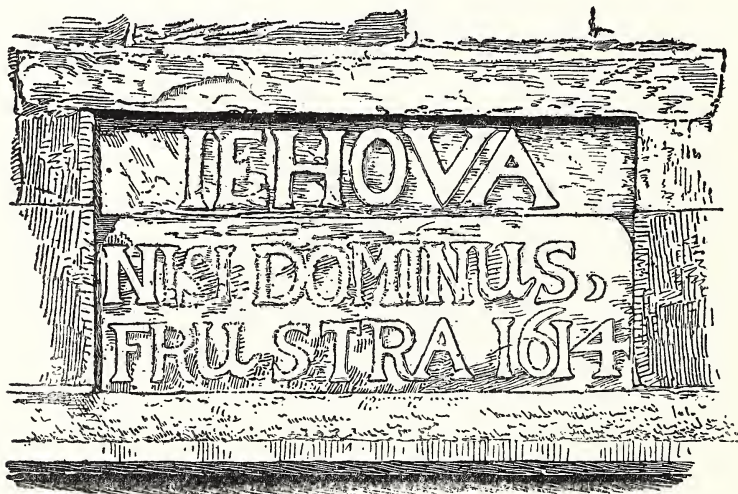 IEHOVA
NISI DOMINUS,
FRUSTRA 1614